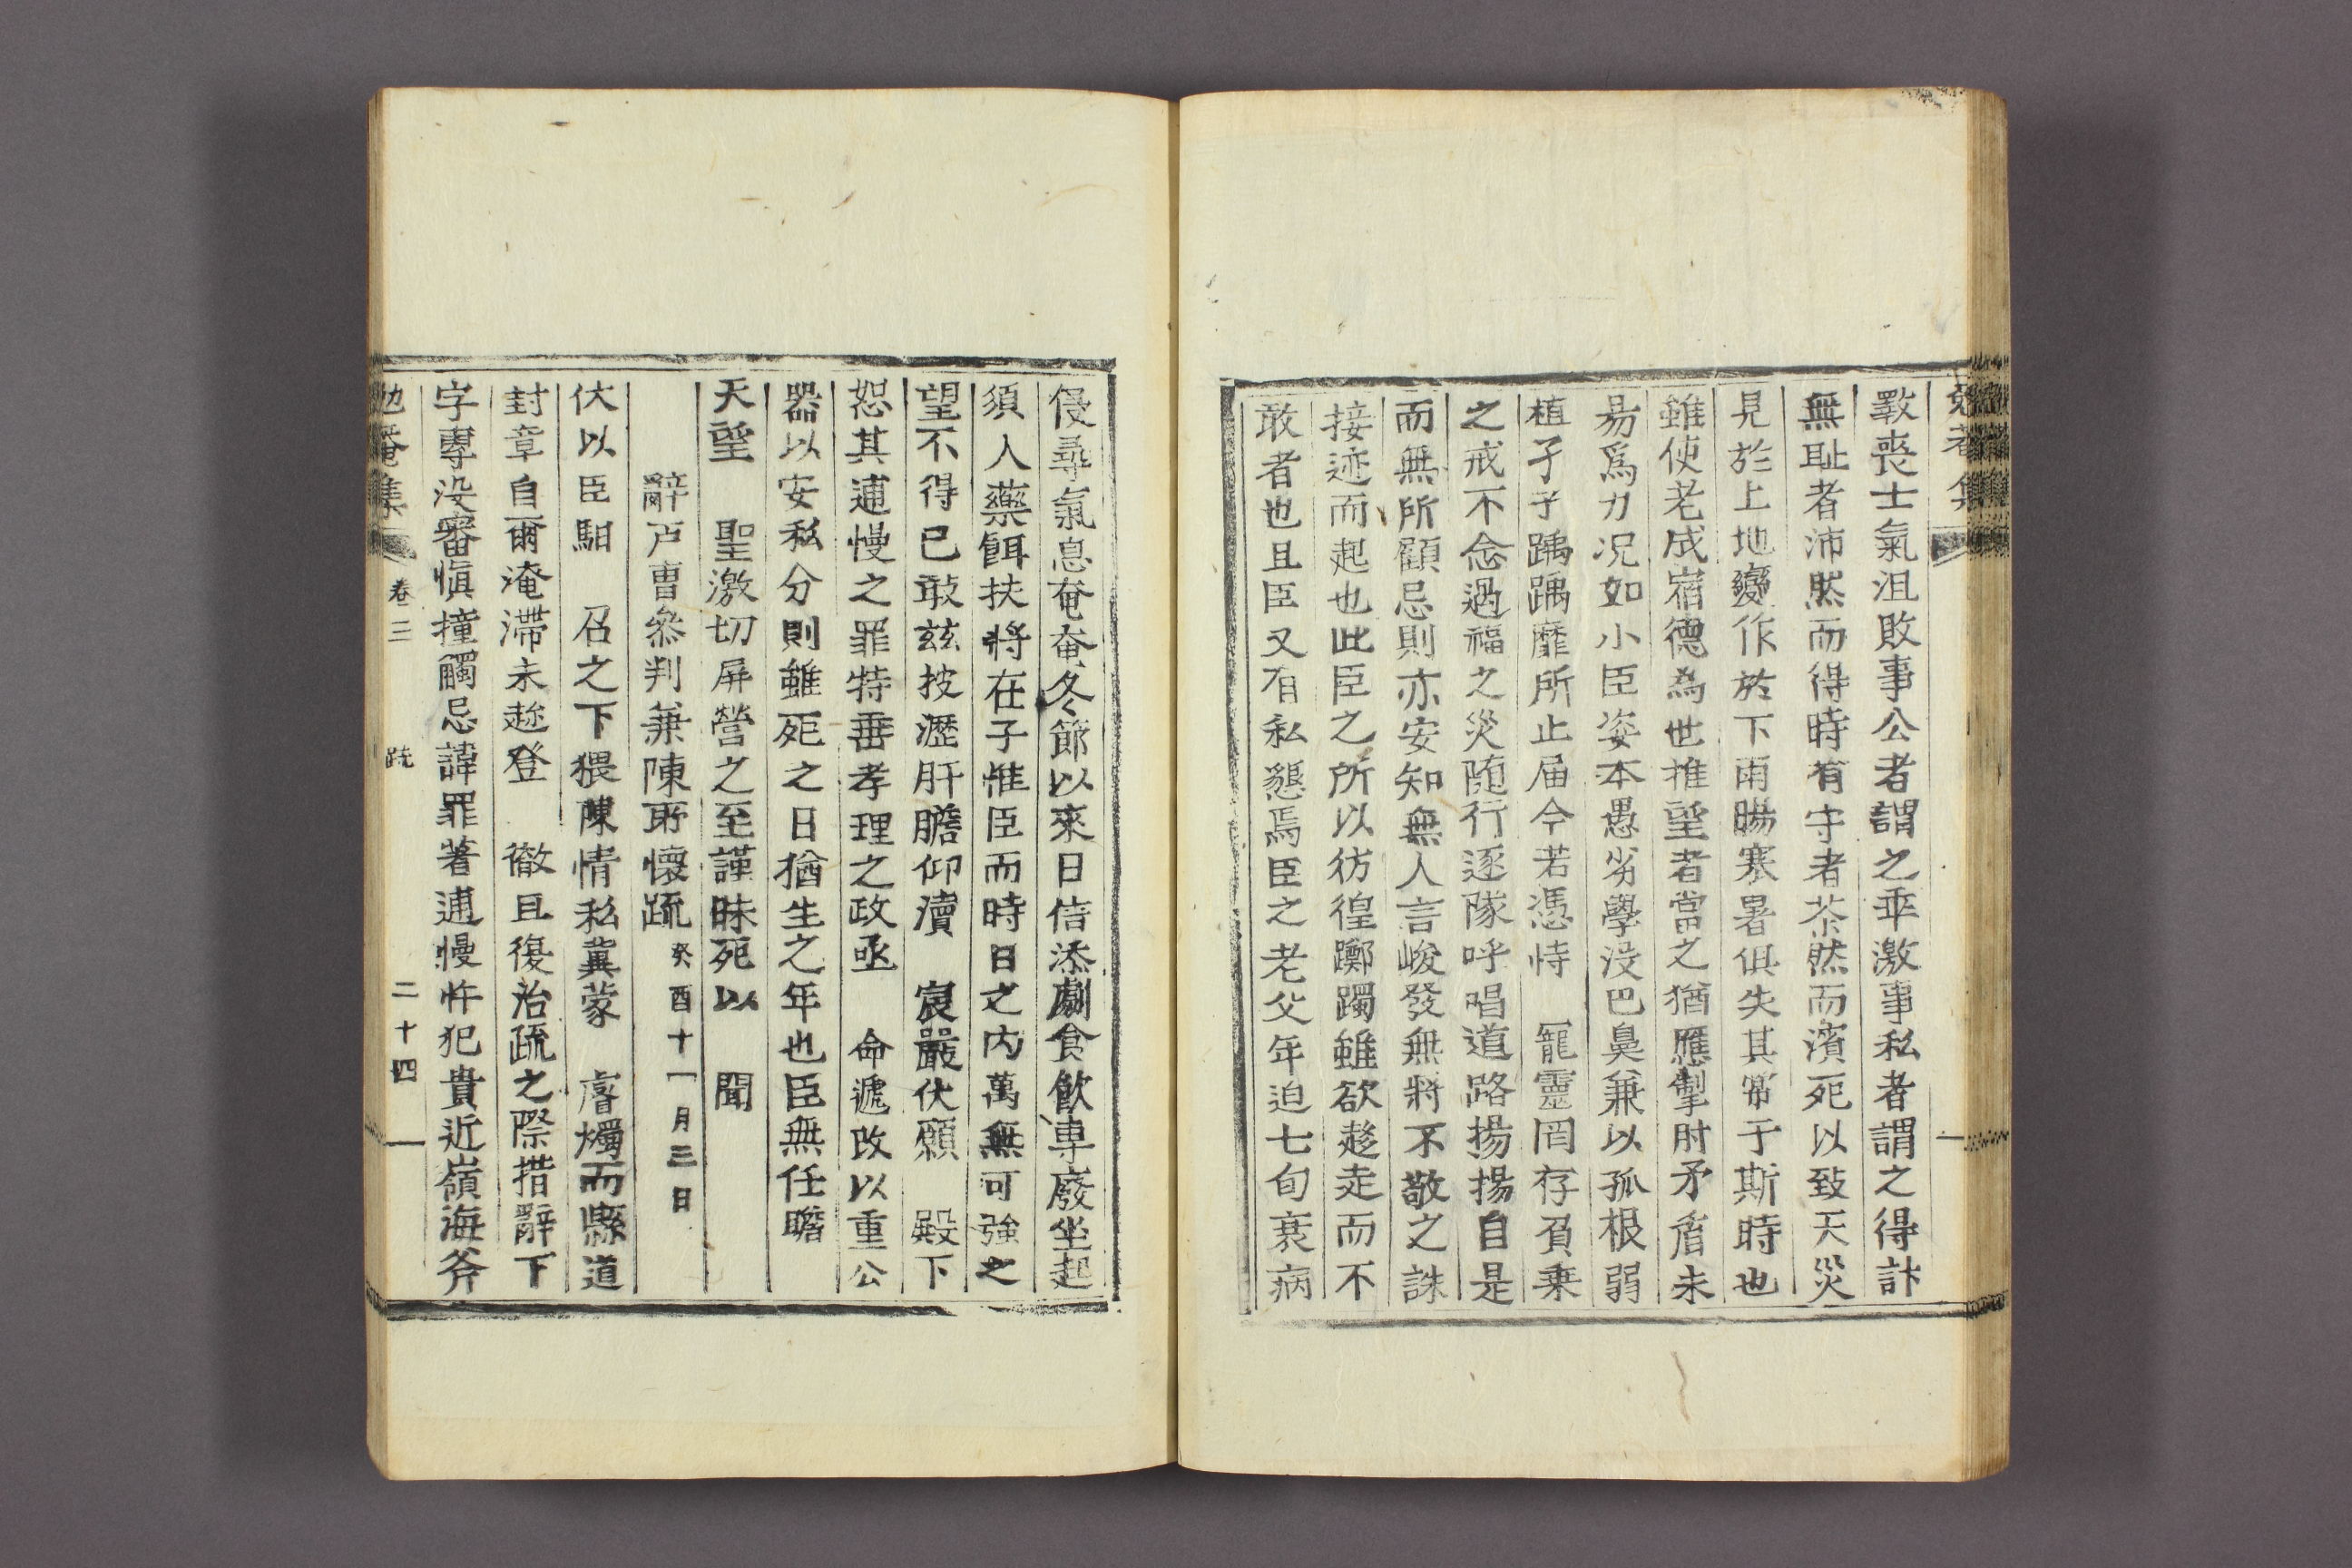 斁喪士氣沮敗事公者謂之乖激事私者謂之得計
無耻者沛然而得時有守者茶然而濱死以致天災
見於上地變作於下雨暘寒暑俱失其常于斯時也
雖使老成宿德為世推望者當之猶應掣肘矛盾未
易爲力况如小臣姿本愚劣學没巴鼻兼以孤根弱
植孑孑踽踽靡所止届今若憑恃　寵靈罔存負乗
之戒不念過福之災随行逐隊呼唱道路揚揚自是
而無所顧忌則亦安知無人言峻發無將不敬之誅
接迹而起也此臣之所以彷徨躑躅雖欲趍走而不
敢者也且臣又有私懇焉臣之老父年迫七旬衰病
侵尋氣息奄奄冬節以來日倍添劇食飲專廢坐起
須人藥餌扶將在子惟臣而時日之内萬無可強之
望不得已敢玆披瀝肝膽仰瀆　宸嚴伏願　殿下
恕其逋慢之罪特垂孝理之政亟　命遞改以重公
器以安私分則雖死之日猶生之年也臣無任瞻
天望　聖激切屏營之至謹昧死以　聞
辭戸曹叅判兼陳所懷疏 癸酉十一月三日
伏以臣馹　召之下猥陳情私冀蒙　睿燭而縣道
封章自爾淹滯未趂登　徹且復治疏之際措辭下
字專没審愼撞觸忌諱罪著逋慢忤犯貴近嶺海斧
勉菴集 卷三 疏 二十四